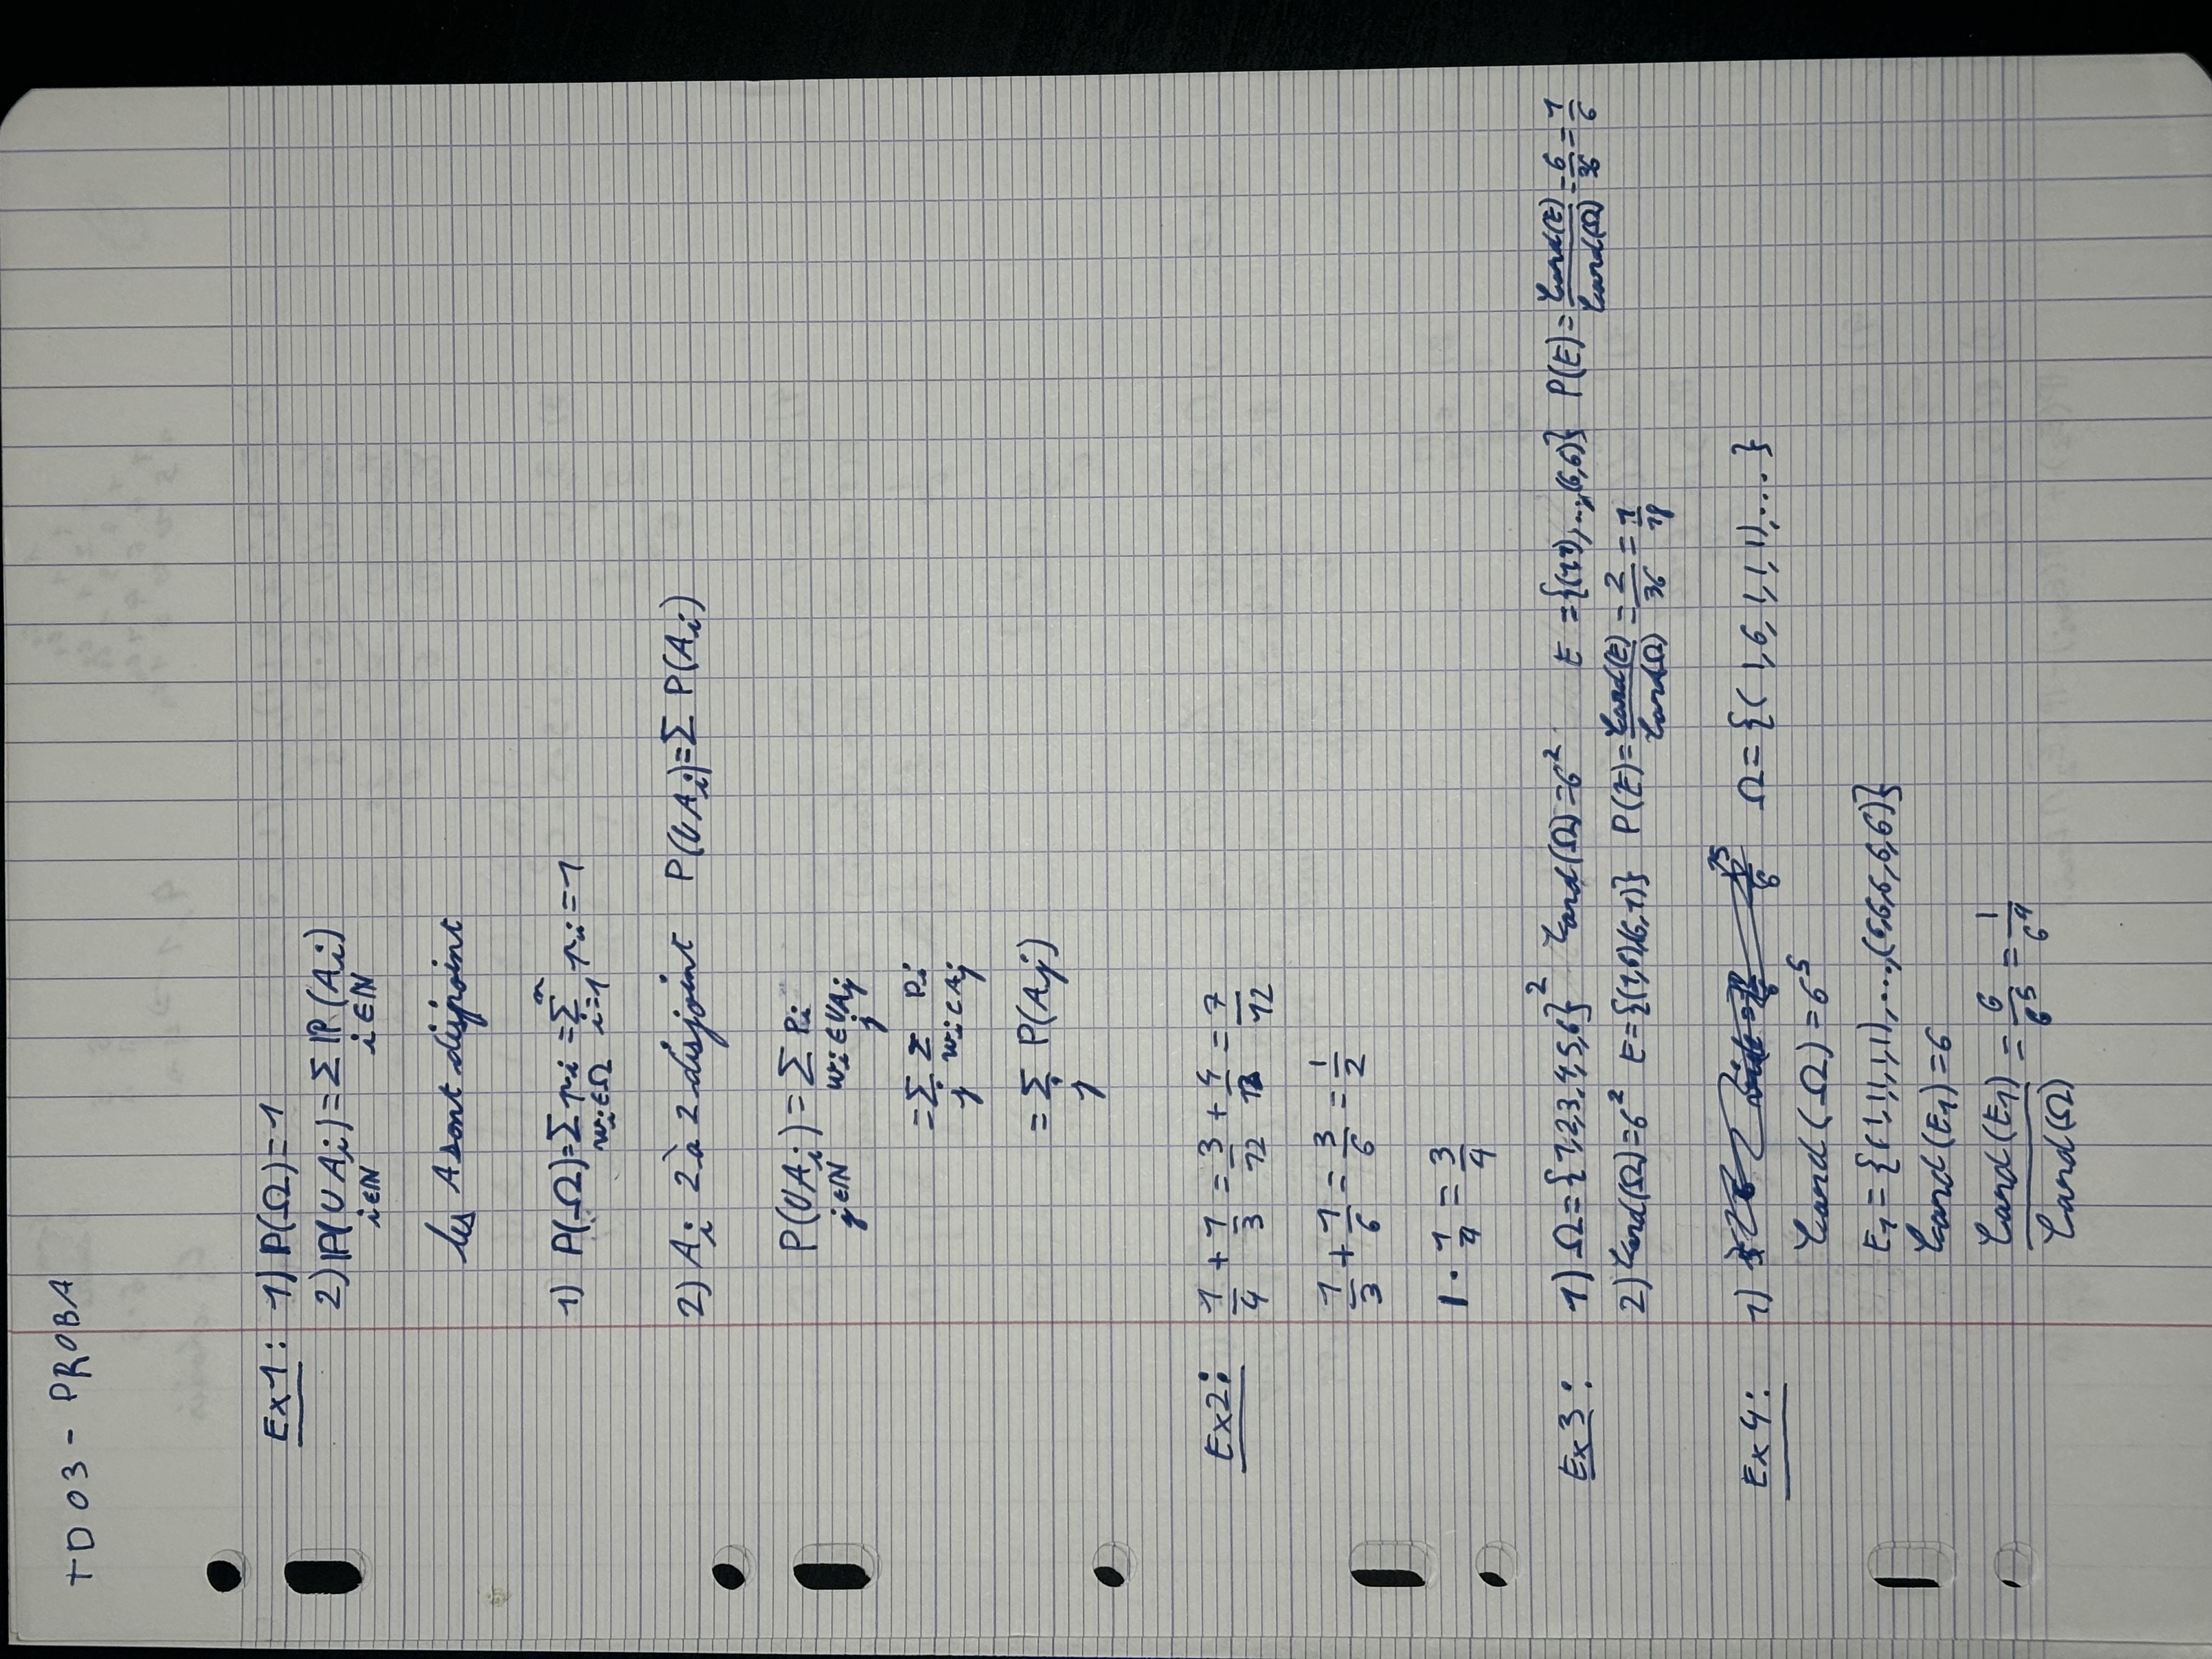 TD 03 - PROBA
Ex 1 : 1) P(Ω) = 1
2) P(∪ A_i) = Σ P(A_i)
i∈N i∈N
les A sont disjoint
1) P(Ω) = Σ p_i = Σ p_i = 1
w_i∈Ω i=1 n
2) A_i 2 à 2 disjoint P(∪A_i) = Σ P(A_i)
P(∪A_i) = Σ P_i
j∈N w_i∈∪A_j
j
= Σ Σ P_i
j w_i∈A_j
= Σ P(A_j)
j
Ex2 : 1/4 + 1/3 = 3/12 + 4/12 = 7/12
1/3 + 1/6 = 3/6 = 1/2
1 - 1/4 = 3/4
Ex 3 : 1) Ω = {1,2,3,4,5,6}² Card(Ω) = 6² E = {(1,1),...,(6,6)} P(E) = Card(E)/Card(Ω) = 6/36 = 1/6
2) Card(Ω) = 6² E = {(1,6)(6,1)} P(E) = Card(E)/Card(Ω) = 2/36 = 1/18
Ex 4 : 1) Ω = {(1,6,1,1,1),....}
Card(Ω) = 6⁵
E₁ = {(1,1,1,1,1),...,(6,6,6,6,6)}
Card(E₁) = 6
Card(E₁)/Card(Ω) = 6/6⁵ = 1/6⁴